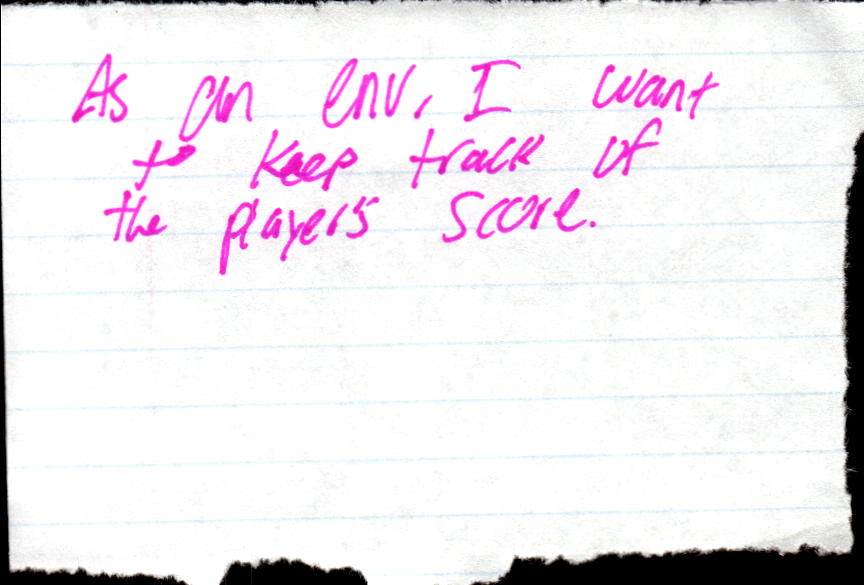 As an env, I want
to keep track of
the player's score.